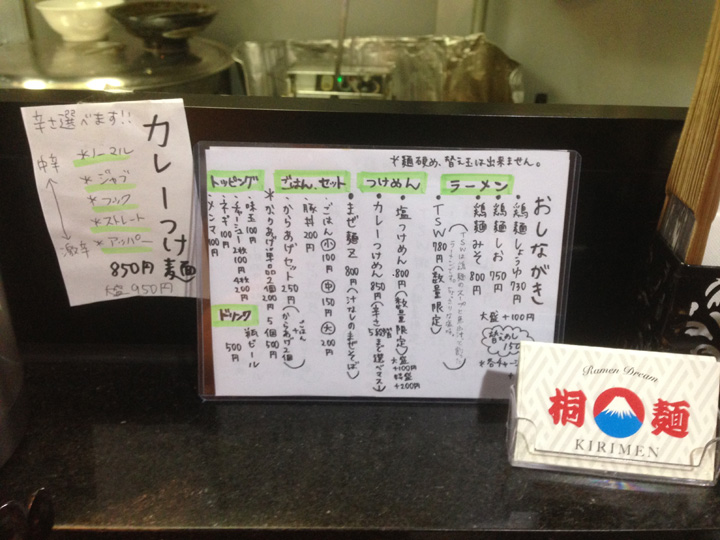 カレーつけ麺
850円
大盛 950円
辛さ選べます!!
中辛
*ノーマル
*ジャブ
*フック
*ストレート
*アッパー
激辛
*麺硬め、替え玉は出来ません。
おしながき
ラーメン
・鶏麺しょうゆ 730円
・鶏麺しお 750円
・鶏麺みそ 800円
大盛 +100円
替えめし 150
・TSW 780円(数量限定)
つけめん
・塩つけめん 800円(数量限定)
・カレーつけめん 850円(辛さ5段階まで選べマス)
大盛 +100円
特盛 +200円
・まぜ麺Z 800円(汁なしのまぜそば)
ごはん、セット
・ごはん 小 100円 中 150円 大 200円
・豚丼 200円
・からあげセット 250円(ごはん+からあげ2個)
*からあげ単品 2個 200円 5個 500円
トッピング
・味玉 100円
・チャーシュー 2枚 100円 4枚 200円
・ネギ 100円
・メンマ 100円
ドリンク
瓶ビール 500円
Ramen Dream
桐麺
KIRIMEN